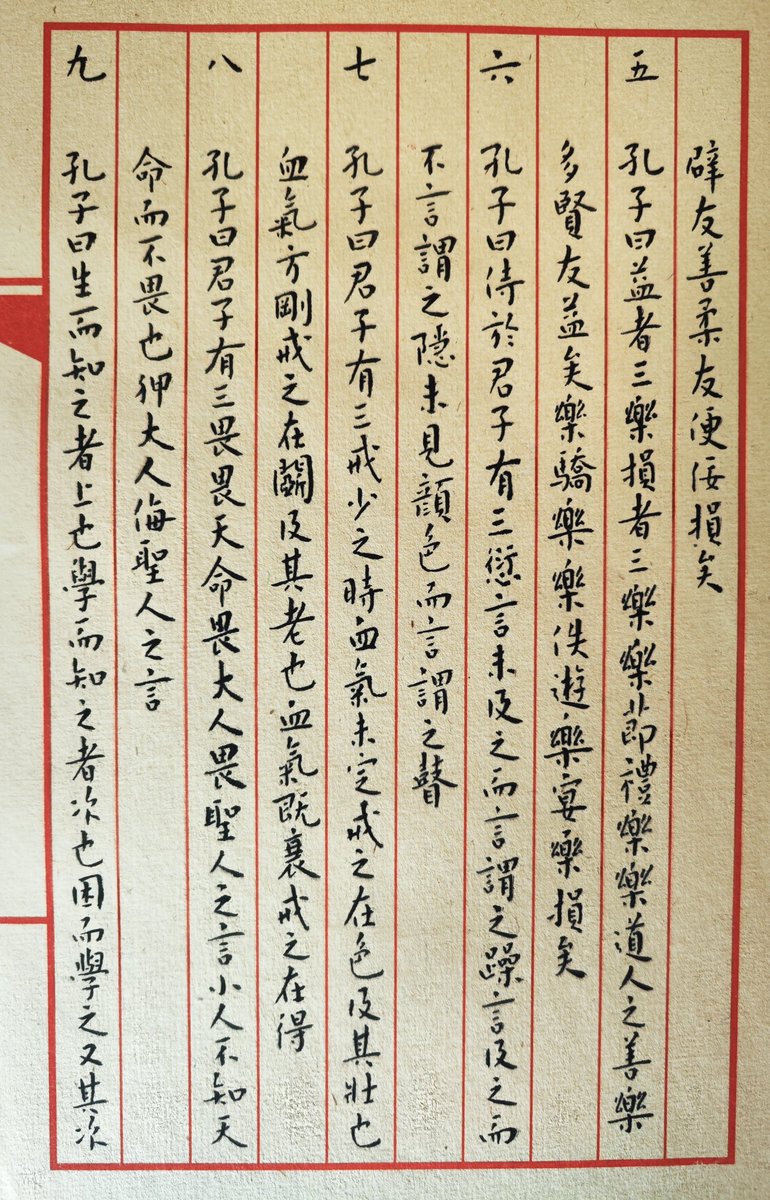 辟友善柔友便佞損矣
五 孔子曰益者三樂損者三樂樂節禮樂樂道人之善樂
多賢友益矣樂驕樂樂佚遊樂宴樂損矣
六 孔子曰侍於君子有三愆言未及之而言謂之躁言及之而
不言謂之隱未見顏色而言謂之瞽
七 孔子曰君子有三戒少之時血氣未定戒之在色及其壯也
血氣方剛戒之在鬭及其老也血氣既衰戒之在得
八 孔子曰君子有三畏畏天命畏大人畏聖人之言小人不知天
命而不畏也狎大人侮聖人之言
九 孔子曰生而知之者上也學而知之者次也困而學之又其次